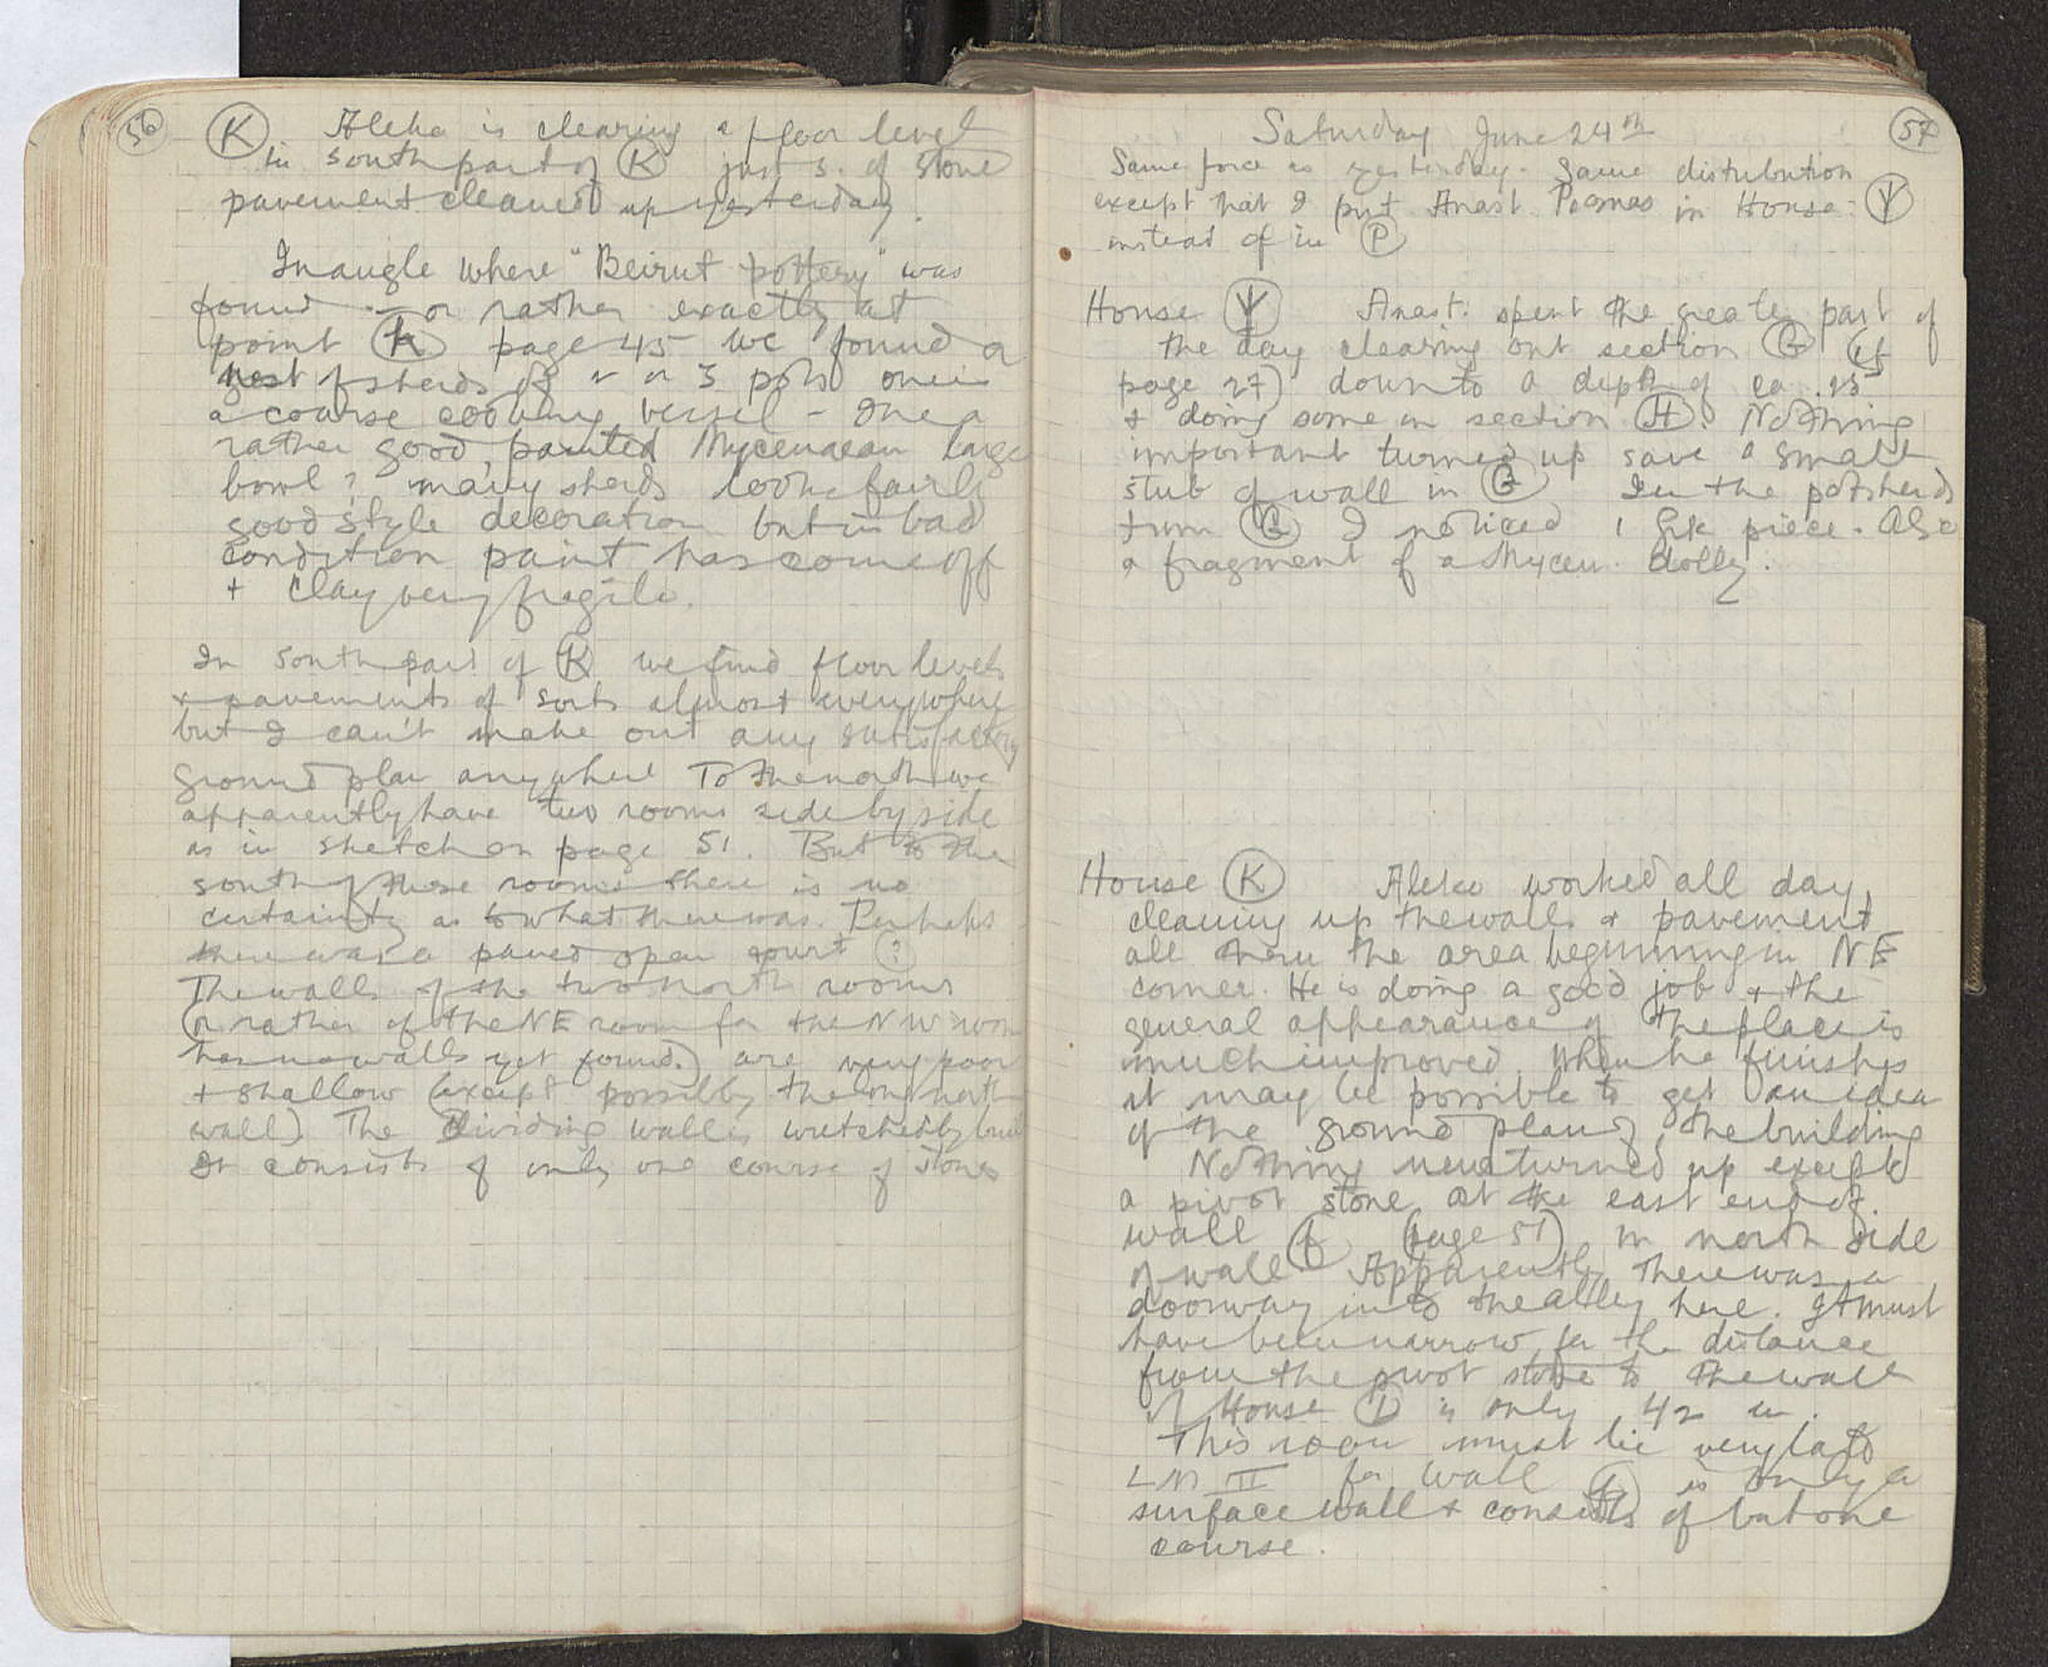 56
K Aleko is clearing a floor level
in south part of K just S. of stone
pavement cleaned up yesterday.
In angle where "Beirut pottery" was
found — or rather exactly at
point k page 45 we found a
nest of sherds of 2 or 3 pots one is
a coarse cooking vessel — one a
rather good, painted Mycenaean large
bowl? many sherds look fairly
good style decoration but in bad
condition paint has come off
+ clay very fragile.
In south part of K we find floor levels
+ pavements of sorts almost everywhere
but I can't make out any satisfactory
ground plan anywhere To the north we
apparently have two rooms side by side
as in sketch on page 51. But to the
south of these rooms there is no
certainty as to what there was. Perhaps
there was a paved open court (?)
The walls of the two north rooms
(or rather of the NE room for the NW room
has no walls yet found.) are very poor
+ shallow (except possibly the long north
wall) The dividing wall is wretchedly built
It consists of only one course of stones
57
Saturday June 24th
Same force as yesterday. Same distribution
except that I put Anast. in House Ψ
instead of in P
House Ψ Anast. spent the greater part of
the day clearing out section G (cf
page 27) down to a depth of ca .25
+ doing some in section H. Nothing
important turned up save a small
stub of wall in G In the potsherds
from G I noticed 1 Gk piece. Also
a fragment of a Mycen. dolly.
House K Aleko worked all day,
cleaning up the walls + pavement
all thru the area beginning in NE
corner. He is doing a good job + the
general appearance of the place is
much improved. When he finishes
it may be possible to get an idea
of the ground plan of the building
Nothing new turned up except
a pivot stone at the east end of
wall f (page 51) in north side
of wall Apparently there was a
doorway into the alley here. It must
have been narrow for the distance
from the pivot stone to the wall
of House I is only .42 m.
This room must be very late
LM III for wall f is only a
surface wall + consists of but one
course.